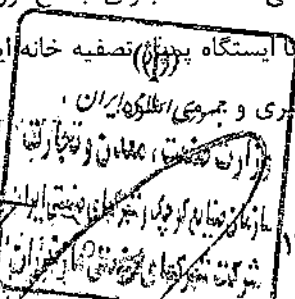 تا ایستگاه پمپاژ تصفیه خانه
ری و جمهوری اسلامی ایران
وزارت صنعت، معدن و تجارت
سازمان صنایع کوچک و شهرکهای صنعتی ایران
شرکت شهرکهای صنعتی مازندران